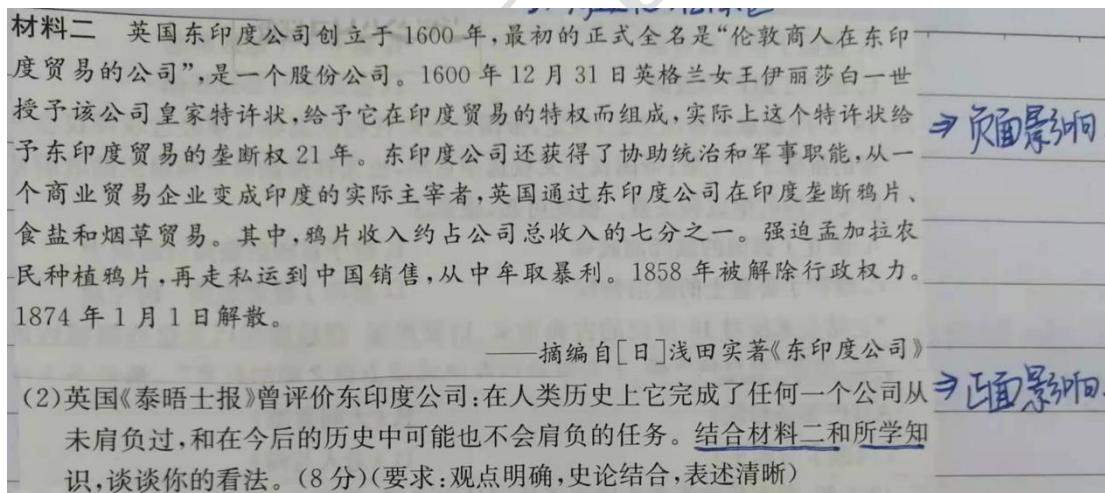 材料二 英国东印度公司创立于1600年,最初的正式全名是“伦敦商人在东印
度贸易的公司”,是一个股份公司。1600年12月31日英格兰女王伊丽莎白一世
授予该公司皇家特许状,给予它在印度贸易的特权而组成,实际上这个特许状给
予东印度贸易的垄断权21年。东印度公司还获得了协助统治和军事职能,从一
⇒负面影响
个商业贸易企业变成印度的实际主宰者,英国通过东印度公司在印度垄断鸦片、
食盐和烟草贸易。其中,鸦片收入约占公司总收入的七分之一。强迫孟加拉农
民种植鸦片,再走私运到中国销售,从中牟取暴利。1858年被解除行政权力。
1874年1月1日解散。
——摘编自[日]浅田实著《东印度公司》
(2)英国《泰晤士报》曾评价东印度公司:在人类历史上它完成了任何一个公司从
⇒正面影响
未肩负过,和在今后的历史中可能也不会肩负的任务。结合材料二和所学知
识,谈谈你的看法。(8分)(要求:观点明确,史论结合,表述清晰)